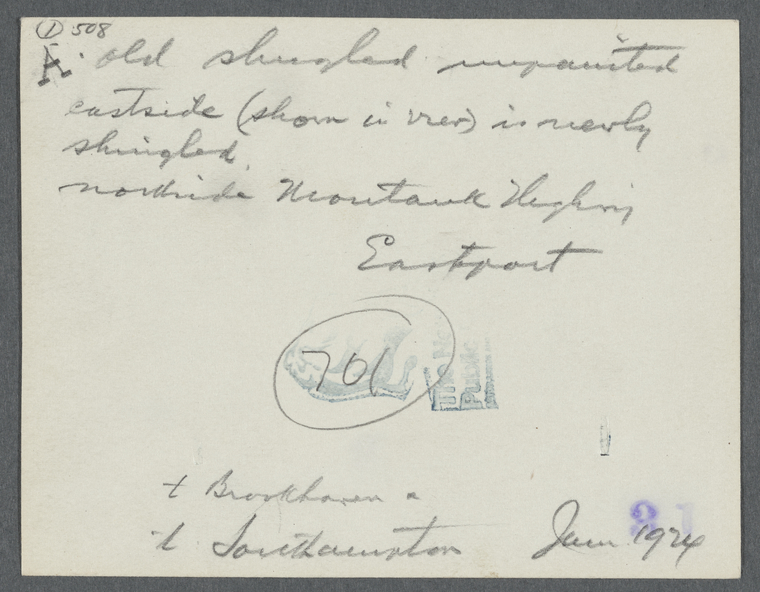 ① 508
A old shingled unpainted
eastside (shown in view) is newly
shingled
northside Montauk Highway
Eastport
701
The Ne
Public
t Brookhaven &
t Southampton Jan 1924
81